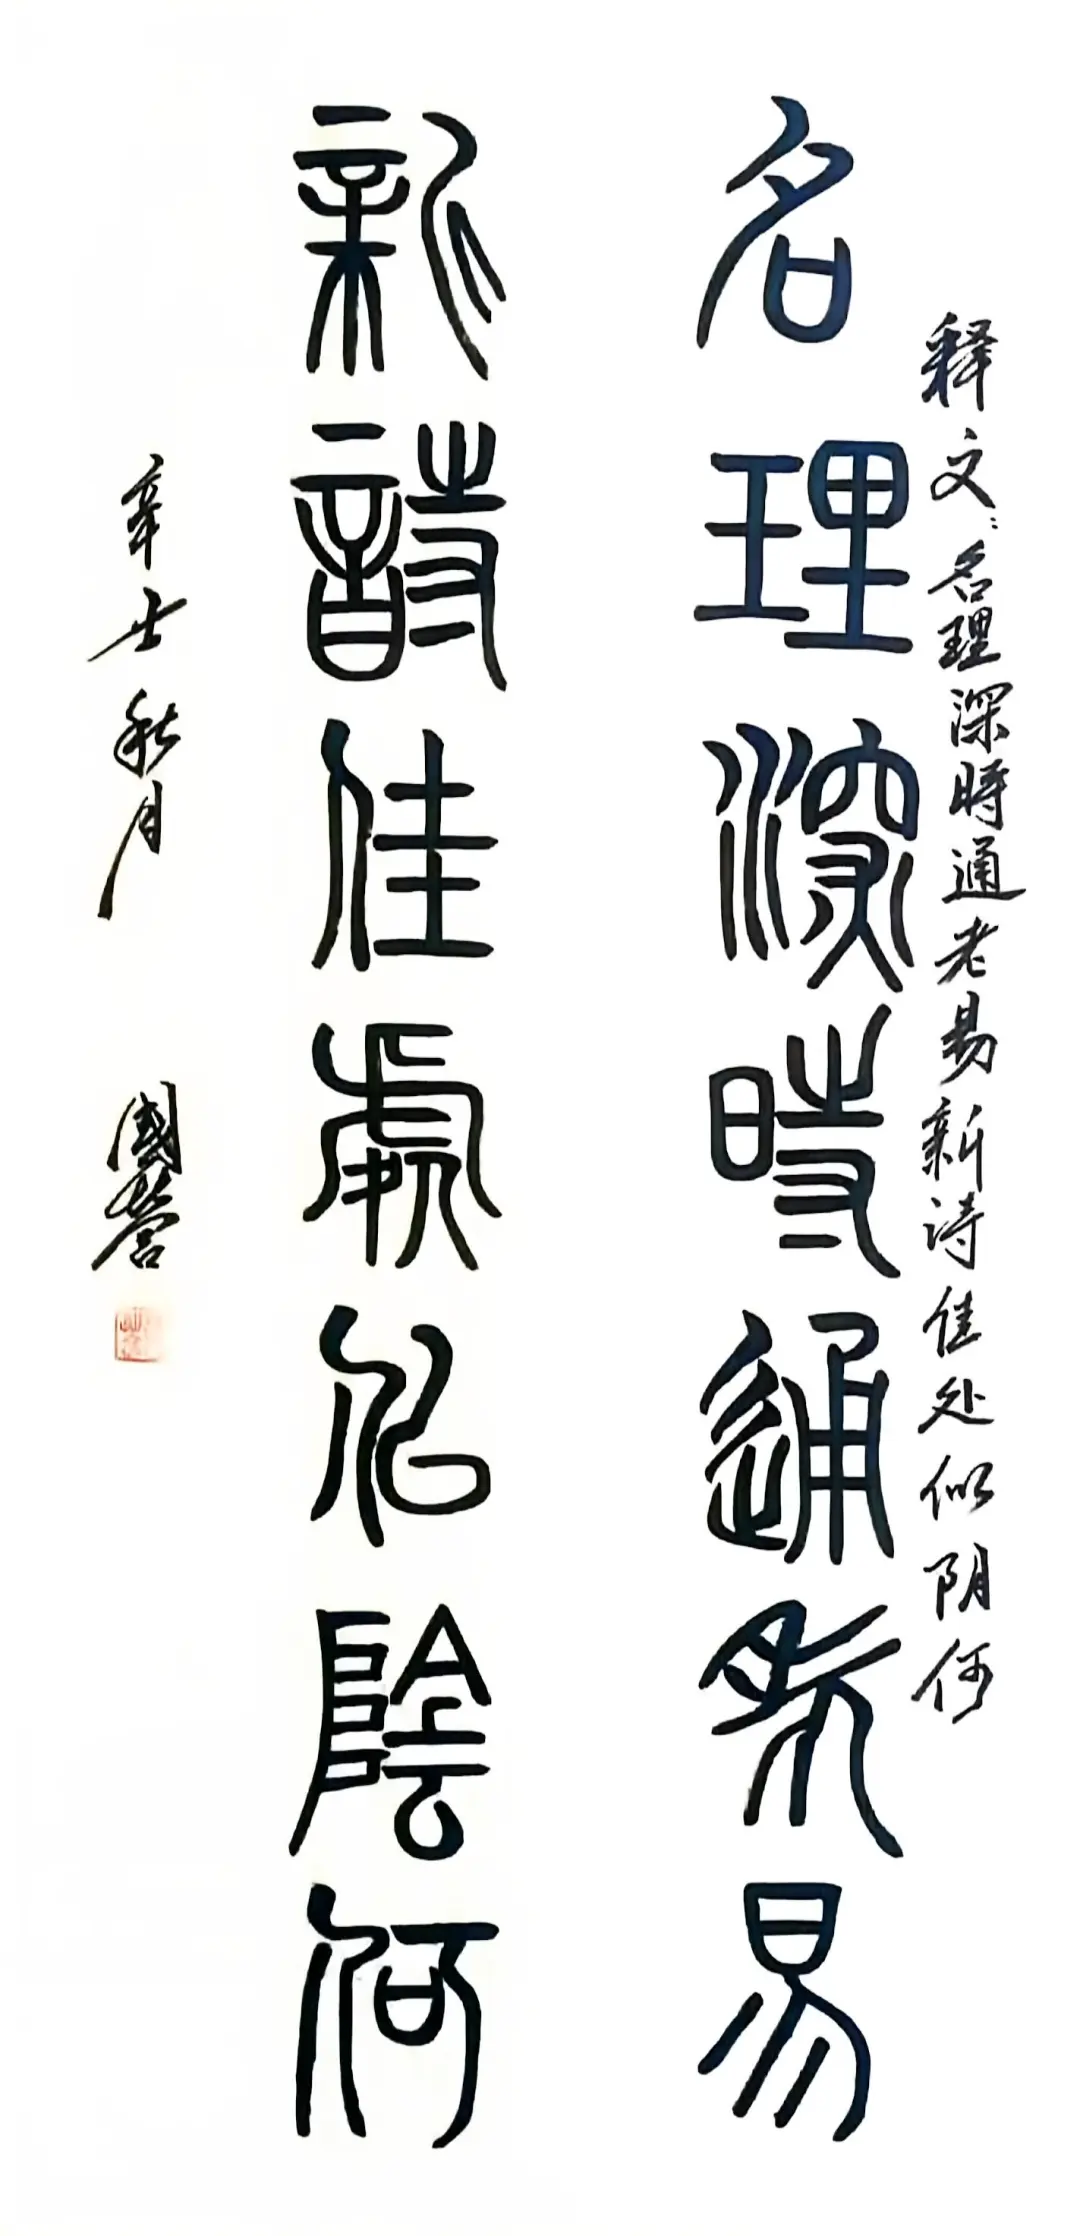 释文：名理深時通老易新诗佳处似阴何
名理深時通老易
新詩佳處似陰何
辛丑秋月 國